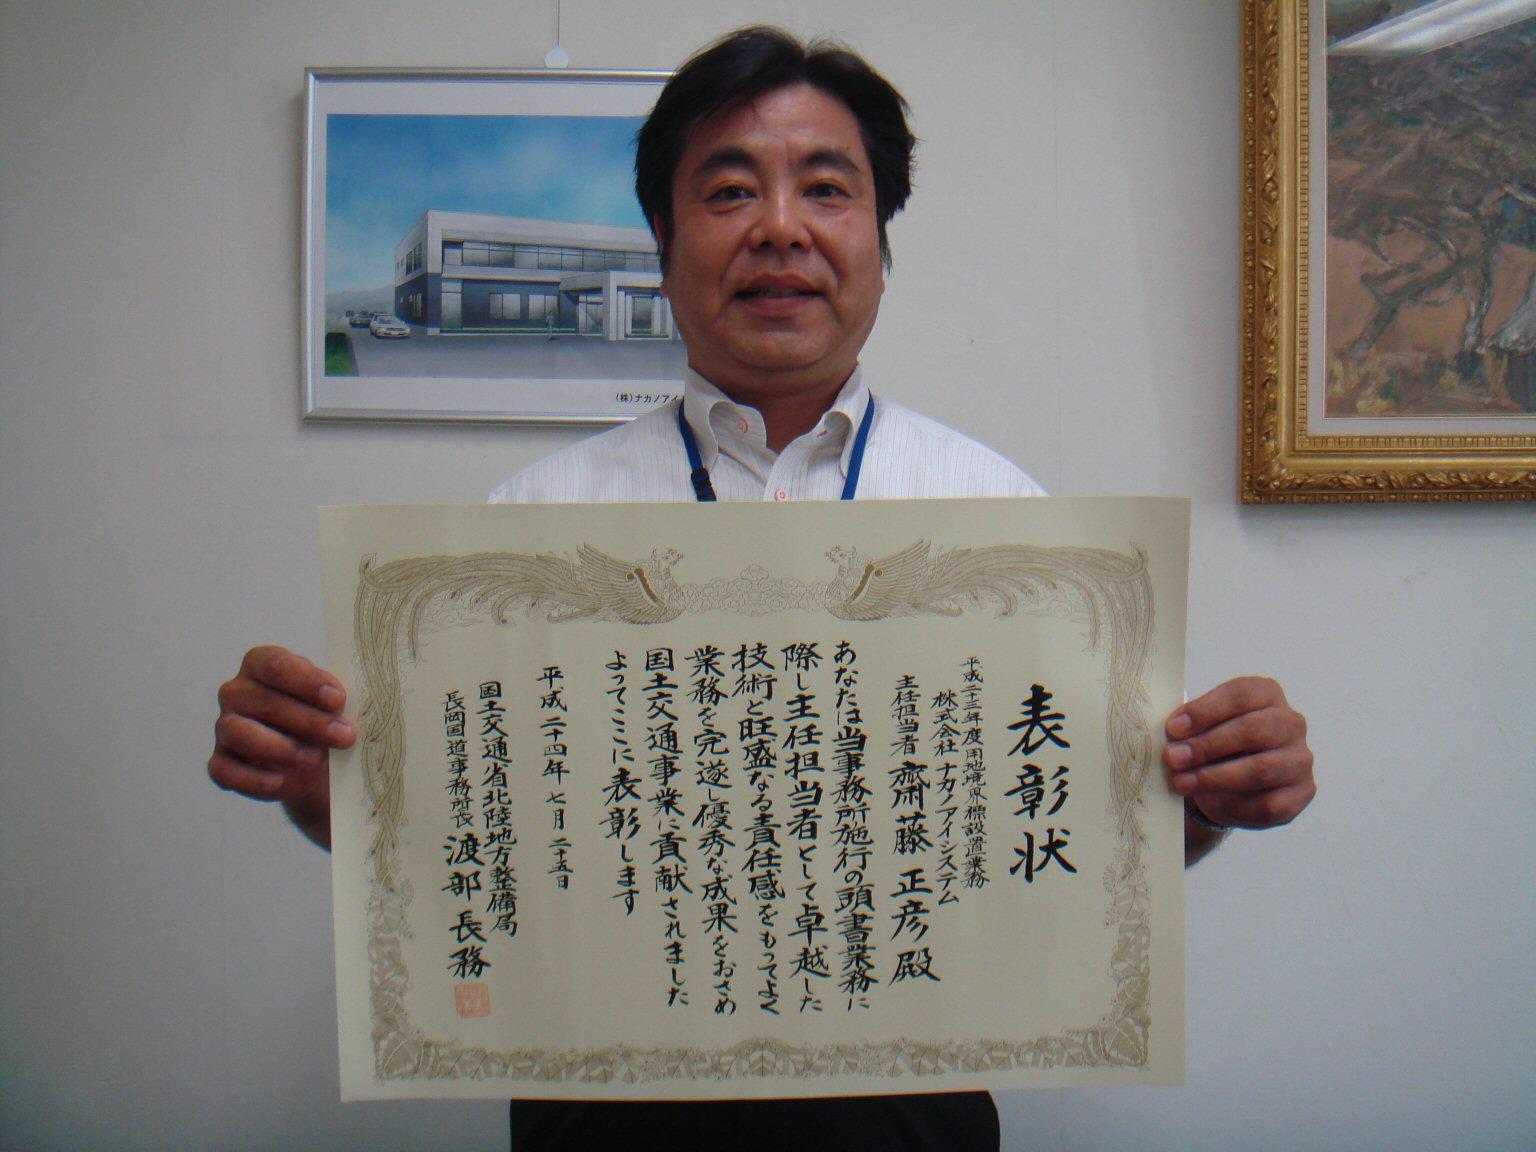 表彰状
平成二十三年度用地境界標設置業務
株式会社 ナカノアイシステム
主任担当者 齋藤 正彦 殿
あなたは当事務所施行の頭書業務に
際し主任担当者として卓越した
技術と旺盛なる責任感をもってよく
業務を完遂し優秀な成果をおさめ
国土交通事業に貢献されました
よってここに表彰します
平成二十四年七月二十五日
国土交通省北陸地方整備局
長岡国道事務所長 渡部 長務
(株)ナカノアイ